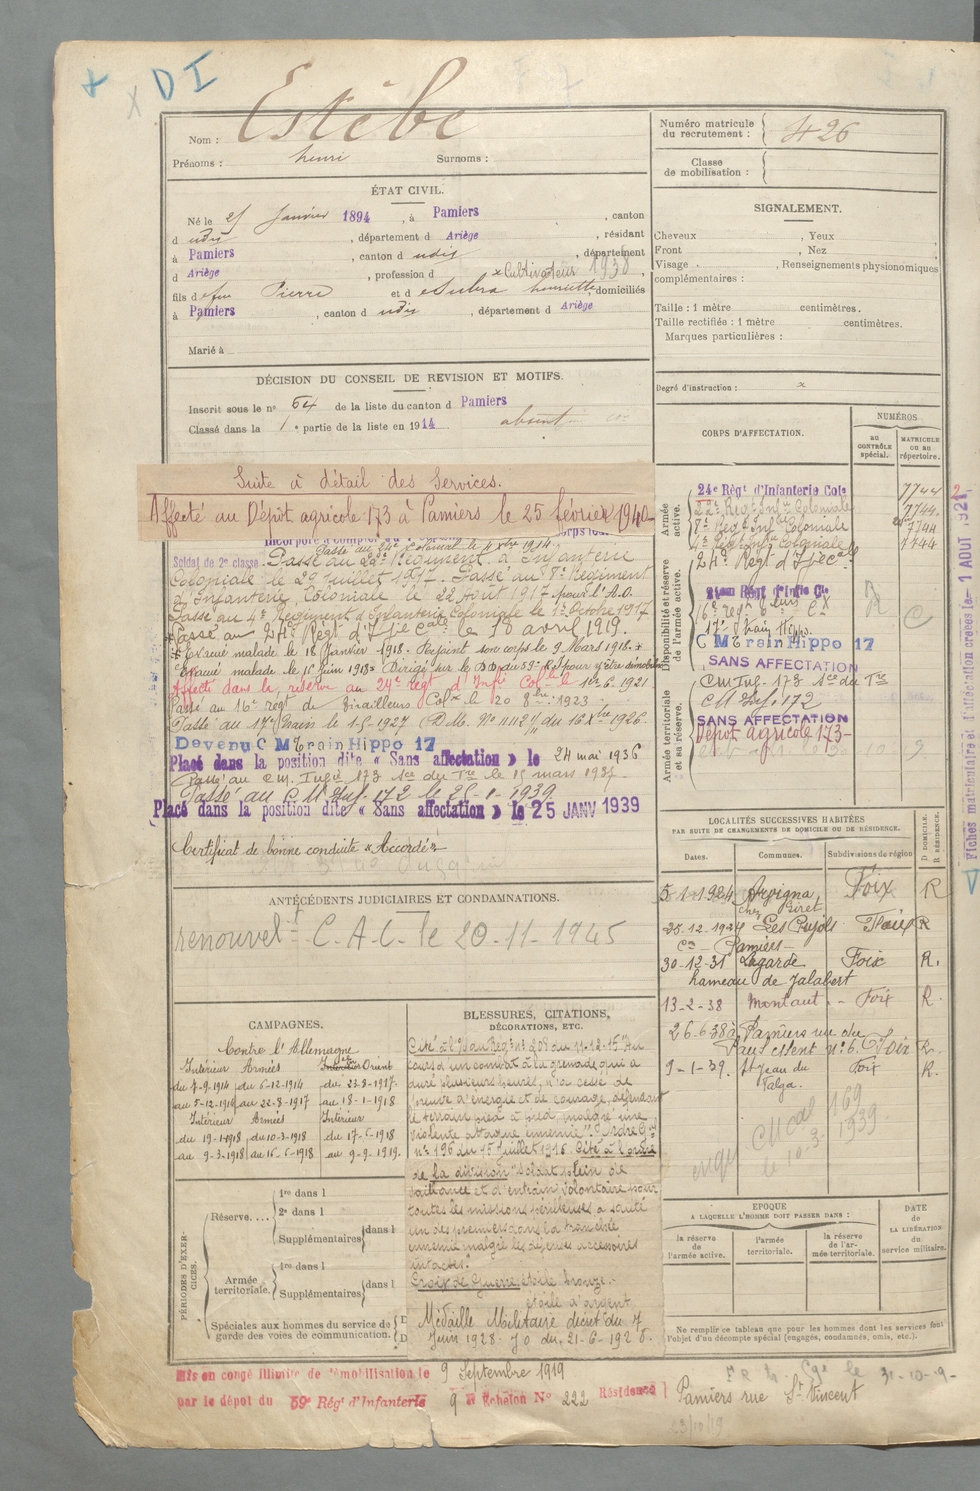 X DI
Estèbe
Nom :
Prénoms : henri Surnoms :
Numéro matricule du recrutement : 426
Classe de mobilisation :
ÉTAT CIVIL.
Né le janvier 1894, à Pamiers, canton
d udis, département d Ariège, résidant
à Pamiers, canton d udis, département
d Ariège, profession d x Cultivateur 1938,
fils de feu Pierre et d henriette, domiciliés
à Pamiers, canton d udis, département d Ariège
Marié à
SIGNALEMENT.
Cheveux , Yeux ,
Front , Nez ,
Visage , Renseignements physionomiques
complémentaires :
Taille : 1 mètre centimètres.
Taille rectifiée : 1 mètre centimètres.
Marques particulières :
Degré d'instruction : x
DÉCISION DU CONSEIL DE REVISION ET MOTIFS.
Inscrit sous le n° 64 de la liste du canton d Pamiers
Classé dans la 1e partie de la liste en 1914. absent
Suite à détail des Services.
Affecté au Dépôt agricole 173 à Pamiers le 25 février 1940
Soldat de 2e classe. Passé au 22e Régiment d'Infanterie
Coloniale le 29 Juillet 1917. Passé au 8e Régiment
d'Infanterie Coloniale le 22 Août 1917 pour l'A.O.
Passé au 4e Régiment d'Infanterie Coloniale le 1er Octobre 1917
Passé au 24e Régt d'Ife Cale le 10 avril 1919.
Evacué malade le 18 Janvier 1918. Rejoint son corps le 9 Mars 1918.
Evacué malade le 15 Juin 1918. Dirigé sur le DD du 59e R.I pour y être démobilisé
Affecté dans la réserve au 24e régt d'Infie Colle le 1er 6. 1921
Passé au 16e régt de Tirailleurs Colx le 20 8bre 1923
Passé au 17e Train le 1.5.1927 (D.M. N° 11127 du 16 Xbre 1926
Devenu C M Train Hippo 17
Placé dans la position dite « Sans affectation » le 24 mai 1936
Passé au C.M. Infie 173 Sce du Tr le 15 mars 1937
Passé au C M Inf. 172 le 25-1-1939.
Placé dans la position dite « Sans affectation » le 25 JANV 1939
Certificat de bonne conduite « Accordé »
CORPS D'AFFECTATION.
NUMÉROS
AU CONTRÔLE spécial.
MATRICULE OU AU répertoire.
Armée active.
24e Régt d'Infanterie Cole 7744
22e Régt Infie Coloniale 7744
8e Régt Infie Coloniale 7744
4e Régt Infie Coloniale 7744
Disponibilité et réserve de l'armée active.
24e Régt d'Ife Cale
16e Régt Tleurs Cx
17e Train Hippo.
C M Train Hippo 17
SANS AFFECTATION
Armée territoriale et sa réserve.
C M Inf. 173 Sce du Tr
C M Inf. 172
SANS AFFECTATION
Dépôt agricole 173
1 AOUT 1921
LOCALITÉS SUCCESSIVES HABITÉES
PAR SUITE DE CHANGEMENTS DE DOMICILE OU DE RÉSIDENCE.
Dates. Communes. Subdivisions de région D DOMICILE. R RÉSIDENCE.
5-1-1924 Arvigna chez Foix R
28-12-1924 Les Pujols Foix R
Cn Pamiers
30-12-31 Lagarde Foix R.
hameau de Jalabert
13-2-38 Montaut Foix R.
26-6-38 à Pamiers rue du
n° 6. Foix R.
9-1-39. St Jean du Falga. Foix R.
ANTÉCÉDENTS JUDICIAIRES ET CONDAMNATIONS.
renouvelt C.A.C. le 20-11-1945
CAMPAGNES.
Contre l'Allemagne
Intérieur Armées Orient
du 7-9-1914 du 6-12-1914 du 23-8-1917
au 5-12-1914 au 22-8-1917 au 18-1-1918
Intérieur Armées Intérieur
du 19-1-1918 du 10-3-1918 du 17-6-1918
au 9-3-1918 au 16-6-1918 au 9-9-1919.
BLESSURES, CITATIONS,
DÉCORATIONS, ETC.
Cité à l'O du Régt n° 201 du 11-12-15 "Au
cours d'un combat à la grenade qui a
duré plusieurs heures, n'a cessé de
preuve d'énergie et de courage, défendant
le terrain pied à pied malgré une
violente attaque ennemie". Ordre Gal
n° 196 du 15 Juillet 1916. Cité à l'ordre
de la division "Soldat plein de
vaillance et d'entrain volontaire pour
toutes les missions périlleuses a sauté
un des premiers dans la tranchée
ennemie malgré les défenses accessoires
intactes."
Croix de Guerre étoile bronze.
étoile d'argent
Médaille Militaire décret du 7
Juin 1928. JO du 21-6-1928.
PÉRIODES D'EXERCICES.
Réserve.... 1re dans l
2e dans l
Supplémentaires dans l
Armée territoriale. 1re dans l
Supplémentaires dans l
Spéciales aux hommes du service de
garde des voies de communication.
ÉPOQUE
A LAQUELLE L'HOMME DOIT PASSER DANS :
la réserve de l'armée active.
l'armée territoriale.
la réserve de l'armée territoriale.
DATE DE LA LIBÉRATION du service militaire.
Ne remplir ce tableau que pour les hommes dont les services font
l'objet d'un décompte spécial (engagés, condamnés, omis, etc.).
Mis en congé illimité de démobilisation le 9 Septembre 1919
par le dépôt du 59e Régt d'Infanterie 9 e Echelon N° 222 Résidence Pamiers rue St Vincent